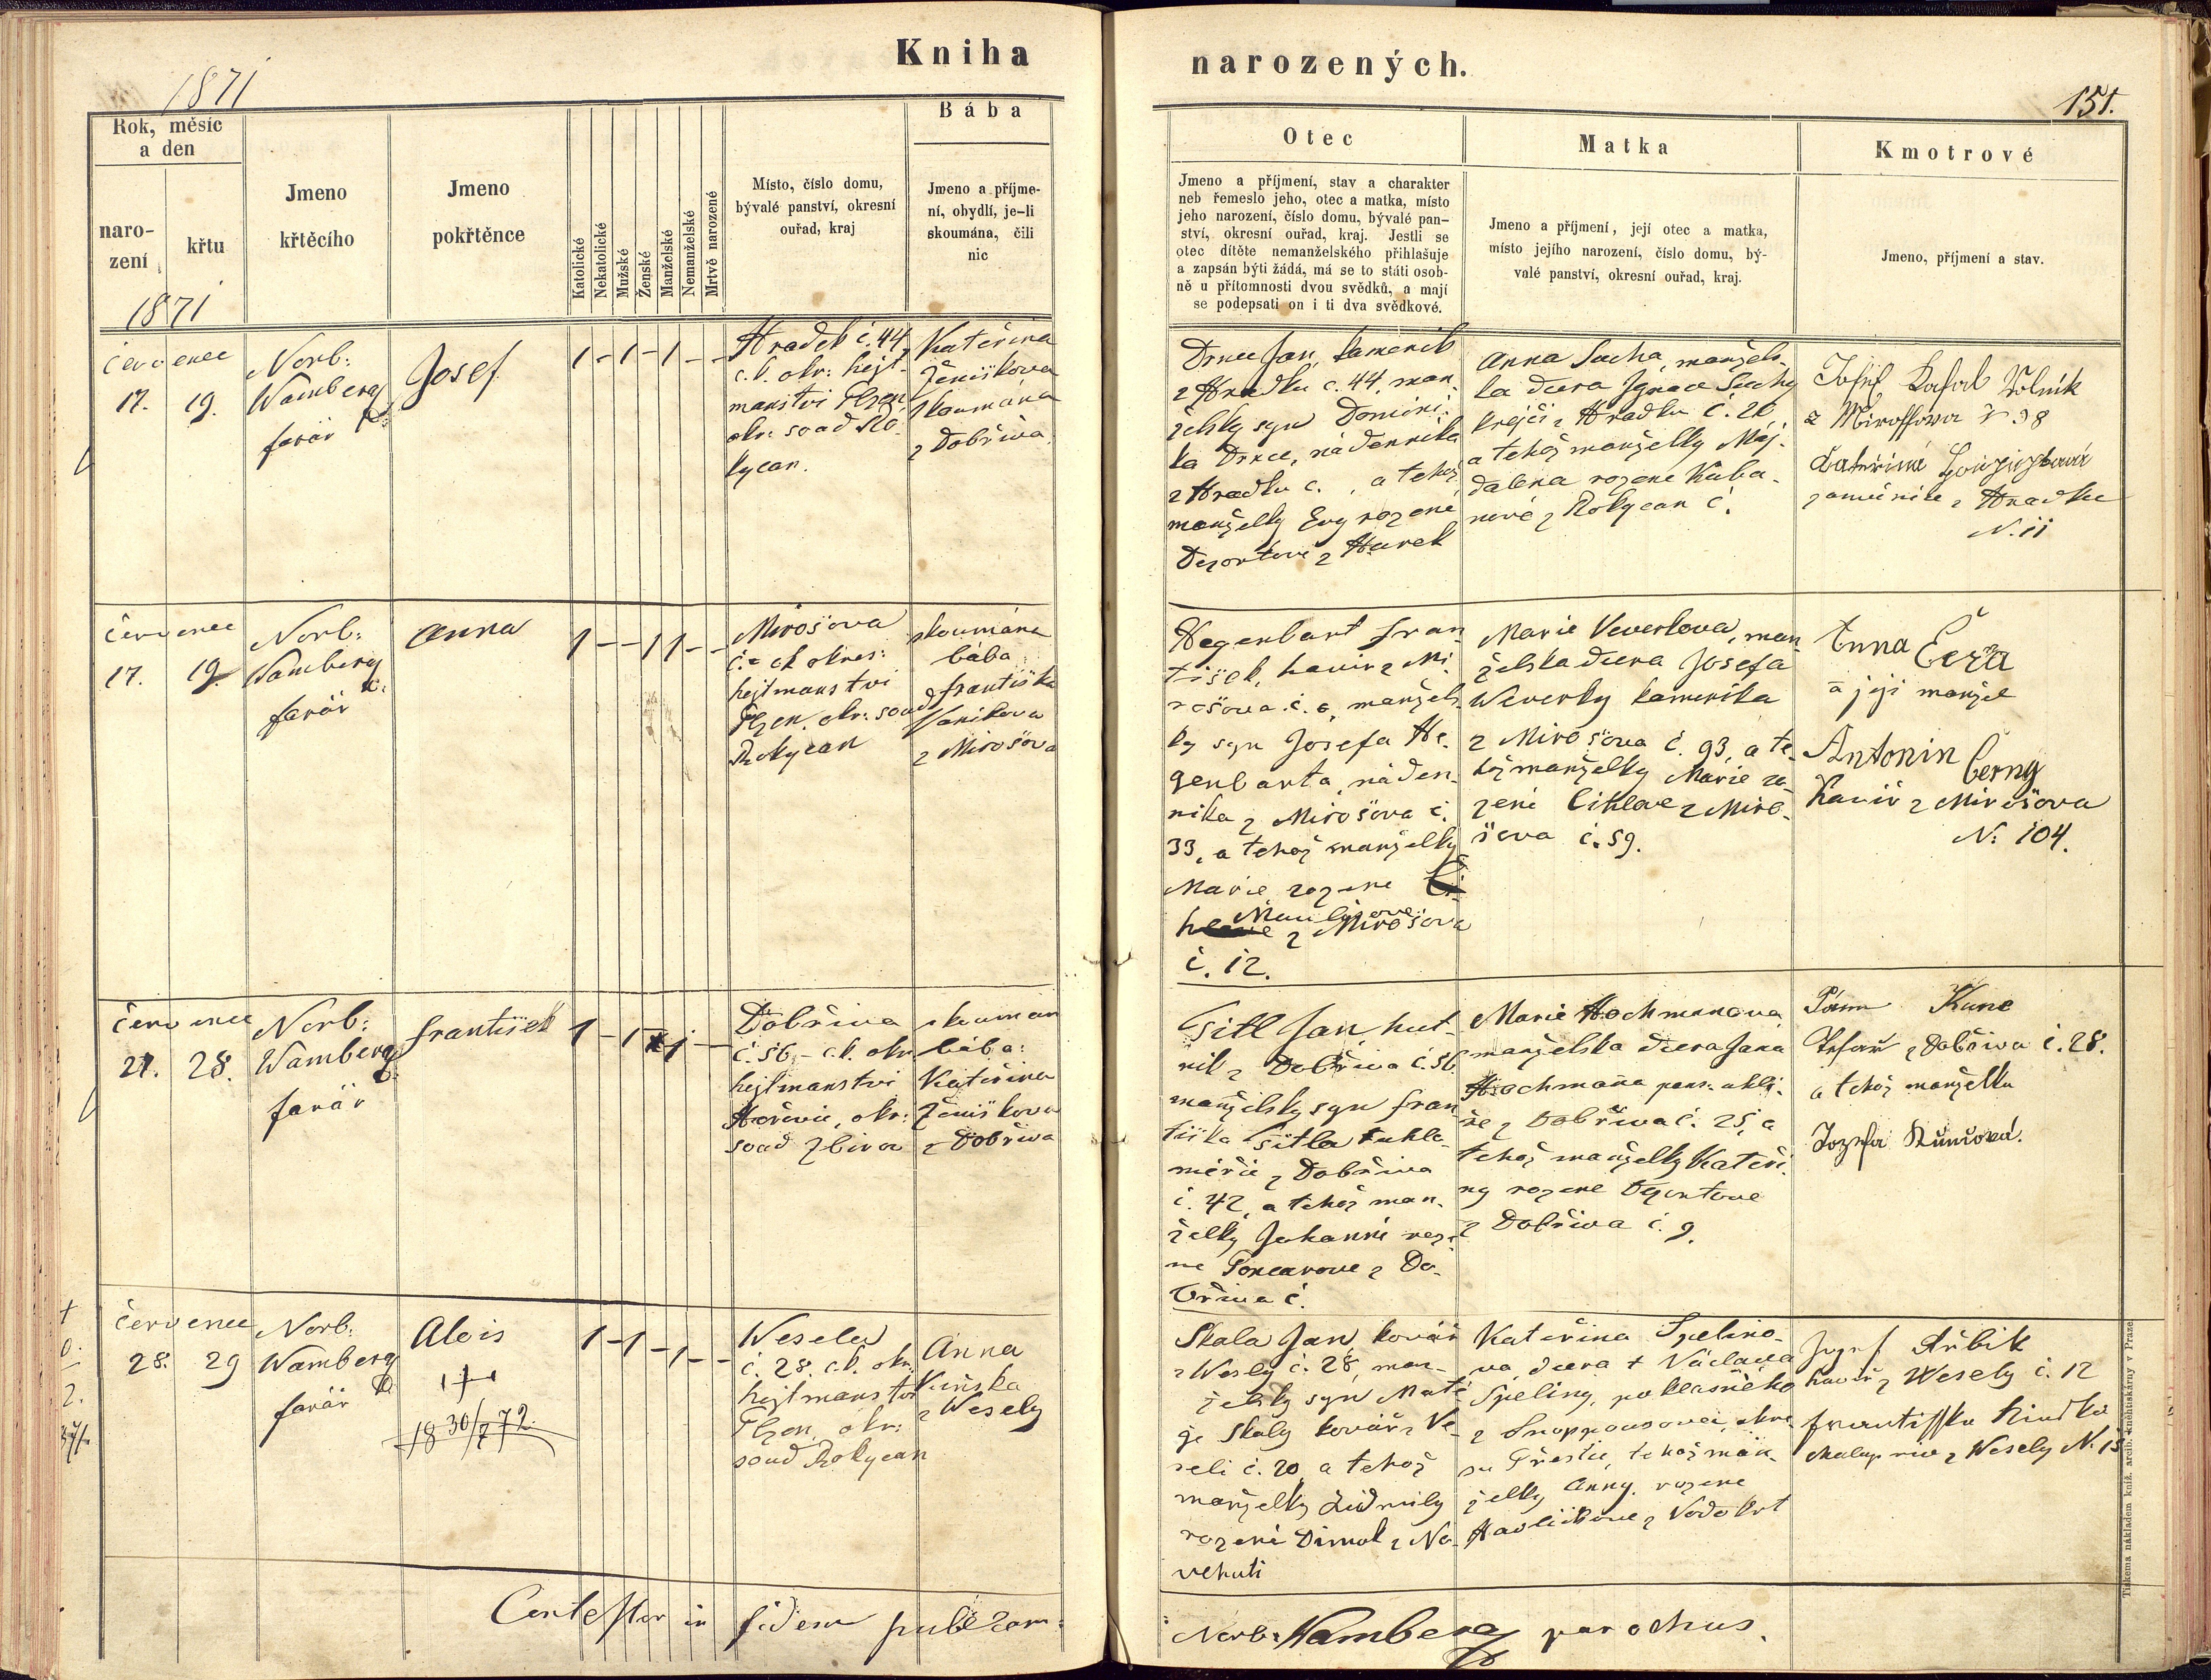 1871
Kniha narozených.
151.
Rok, měsíc
a den
naro-
zení
křtu
1871
Jmeno
křtěcího
Jmeno
pokřtěnce
Katolické
Nekatolické
Mužské
Ženské
Manželské
Nemanželské
Mrtvě narozené
Místo, číslo domu,
bývalé panství, okresní
ouřad, kraj
Bába
Jmeno a příjme-
ní, obydlí, je-li
skoumána, čili
nic
Otec
Jmeno a příjmení, stav a charakter
neb řemeslo jeho, otec a matka, místo
jeho narození, číslo domu, bývalé pan-
ství, okresní ouřad, kraj. Jestli se
otec dítěte nemanželského přihlašuje
a zapsán býti žádá, má se to státi osob-
ně u přítomnosti dvou svědků, a mají
se podepsati on i ti dva svědkové.
Matka
Jmeno a příjmení, její otec a matka,
místo jejího narození, číslo domu, bý-
valé panství, okresní ouřad, kraj.
Kmotrové
Jmeno, příjmení a stav.
červenec
17. 19.
Norb:
Wamberg
farář
Josef
1 - 1 - 1 - -
Hradek č. 44,
c.k. okr: hejt-
manstvi Plzen
okr: soud Ro-
kycan.
Kateřina
Ženiškova
skoumána
z Dobřiva.
Drnec Jan, kamenik
z Hradku č. 44, man-
želsky syn Domini-
ka Drnce, nádennika
z Hradku č. , a tehož
manželky Evy rozené
Dezortove z Hurek
Anna Sucha, manžels-
ka dcera Ignace Suchy
krejči z Hradku č. 20
a tehož manželky Maj-
dalena rozene Kuba-
nové z Rokycan č.
Josef
z Miroššowa N 38
Kateřina
z Hradku
N. 11
červenec
17. 19.
Norb:
Wamberg
farář
Anna
1 - - 1 1 - -
Mirošova
č. ck okres:
hejtmanstvi
Plzen. okr: soud
Rokycan
skoumána
bába
Františka
Vanikova
z Mirošova
Hegenbart Fran-
tišek, havir z Mi-
rošova č. 6, manžels-
ky syn Josefa He-
genbarta, náden-
nika z Mirošova č.
33, a tehož manželky
Marie rozene
z Mirošova
č. 12.
Marie Veverkova, man-
želska dcera Josefa
Weverky kamenika
z Mirošova č. 93, a te-
hož manželky Marie ro-
zené Cihlove z Miro-
šova č. 59.
Anna
a její manžel
Antonin Černy
Havíř z Mirošova
N: 104.
červenec
27. 28.
Norb:
Wamberg
farář
František
1 - 1 1 - -
Dobřiva
č. 56 - c.k. okr.
hejtmanstvi
Hořovic, okr:
soud Zbirov
skouman
bába:
Kateřina
Ženiškova
z Dobřiva
Šitl Jan, hut-
nik z Dobřiva č. 56.
manželsky syn Fran-
tiška Šitla uhlo-
měřič z Dobřiva
č. 42, a tehož man-
želky Johanni roze-
ne Poncarove z Do-
břiva č.
Marie Hochmanova,
manželska dcera Jana
Hochmana pans. uhli-
ře z Dobřiva č. 25, a
tehož manželky Kateři-
ny rozene Dezortove
z Dobřiva č. 9.
Kunc
z Dobřiva č. 28.
a tehož manželka
Jozefa Kuncová.
červenec
28. 29
Norb:
Wamberg
farář
Alois
18 30/7 72
1 - 1 - 1 - -
Wesela
č. 28. c.k. okr:
hejtmanstvi
Plzen, okr:
soud Rokycan
Anna
z Wesely
Skala Jan, kovář
z Wesely č. 28, man-
želsky syn Matě-
je Skaly kovář z Ve-
seli č. 20 a tehož
manželky Lidmily
rozené Dimok z No-
vehuti
Kateřina Spelino-
va, dcera † Václava
Speliny, poklasného
z Snopousova, okre-
su Přestic, tehož man-
želky Anny rozene
Havličkove z Vodokrt
Jozef
havíř z Wesely č. 12
Františka
z Wesely N. 15
Contestor in fidem publicam:
Norb: Wamberg parochus.
Tiskem a nákladem kníž. arcib. knihtiskárny v Praze.